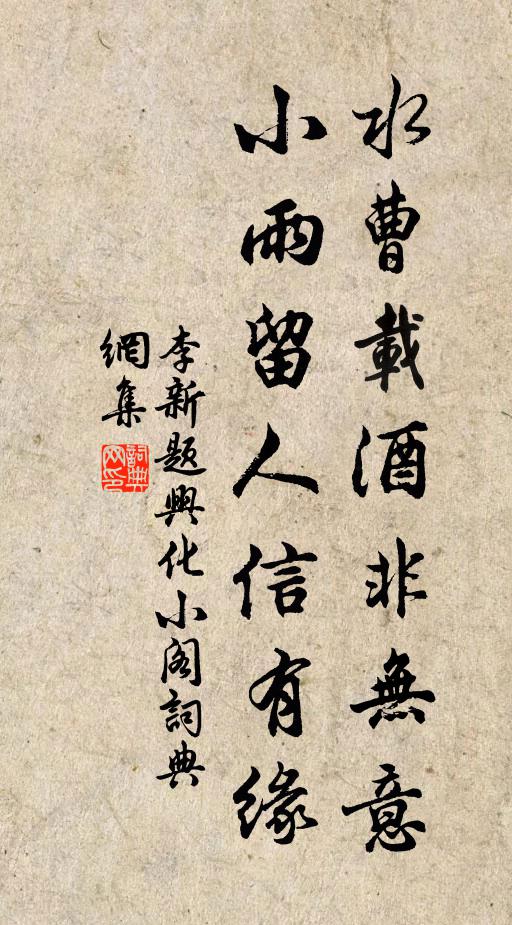 水曹載酒非無意
小雨留人信有緣
李新題興化小閣詞典
網集
詞典網印